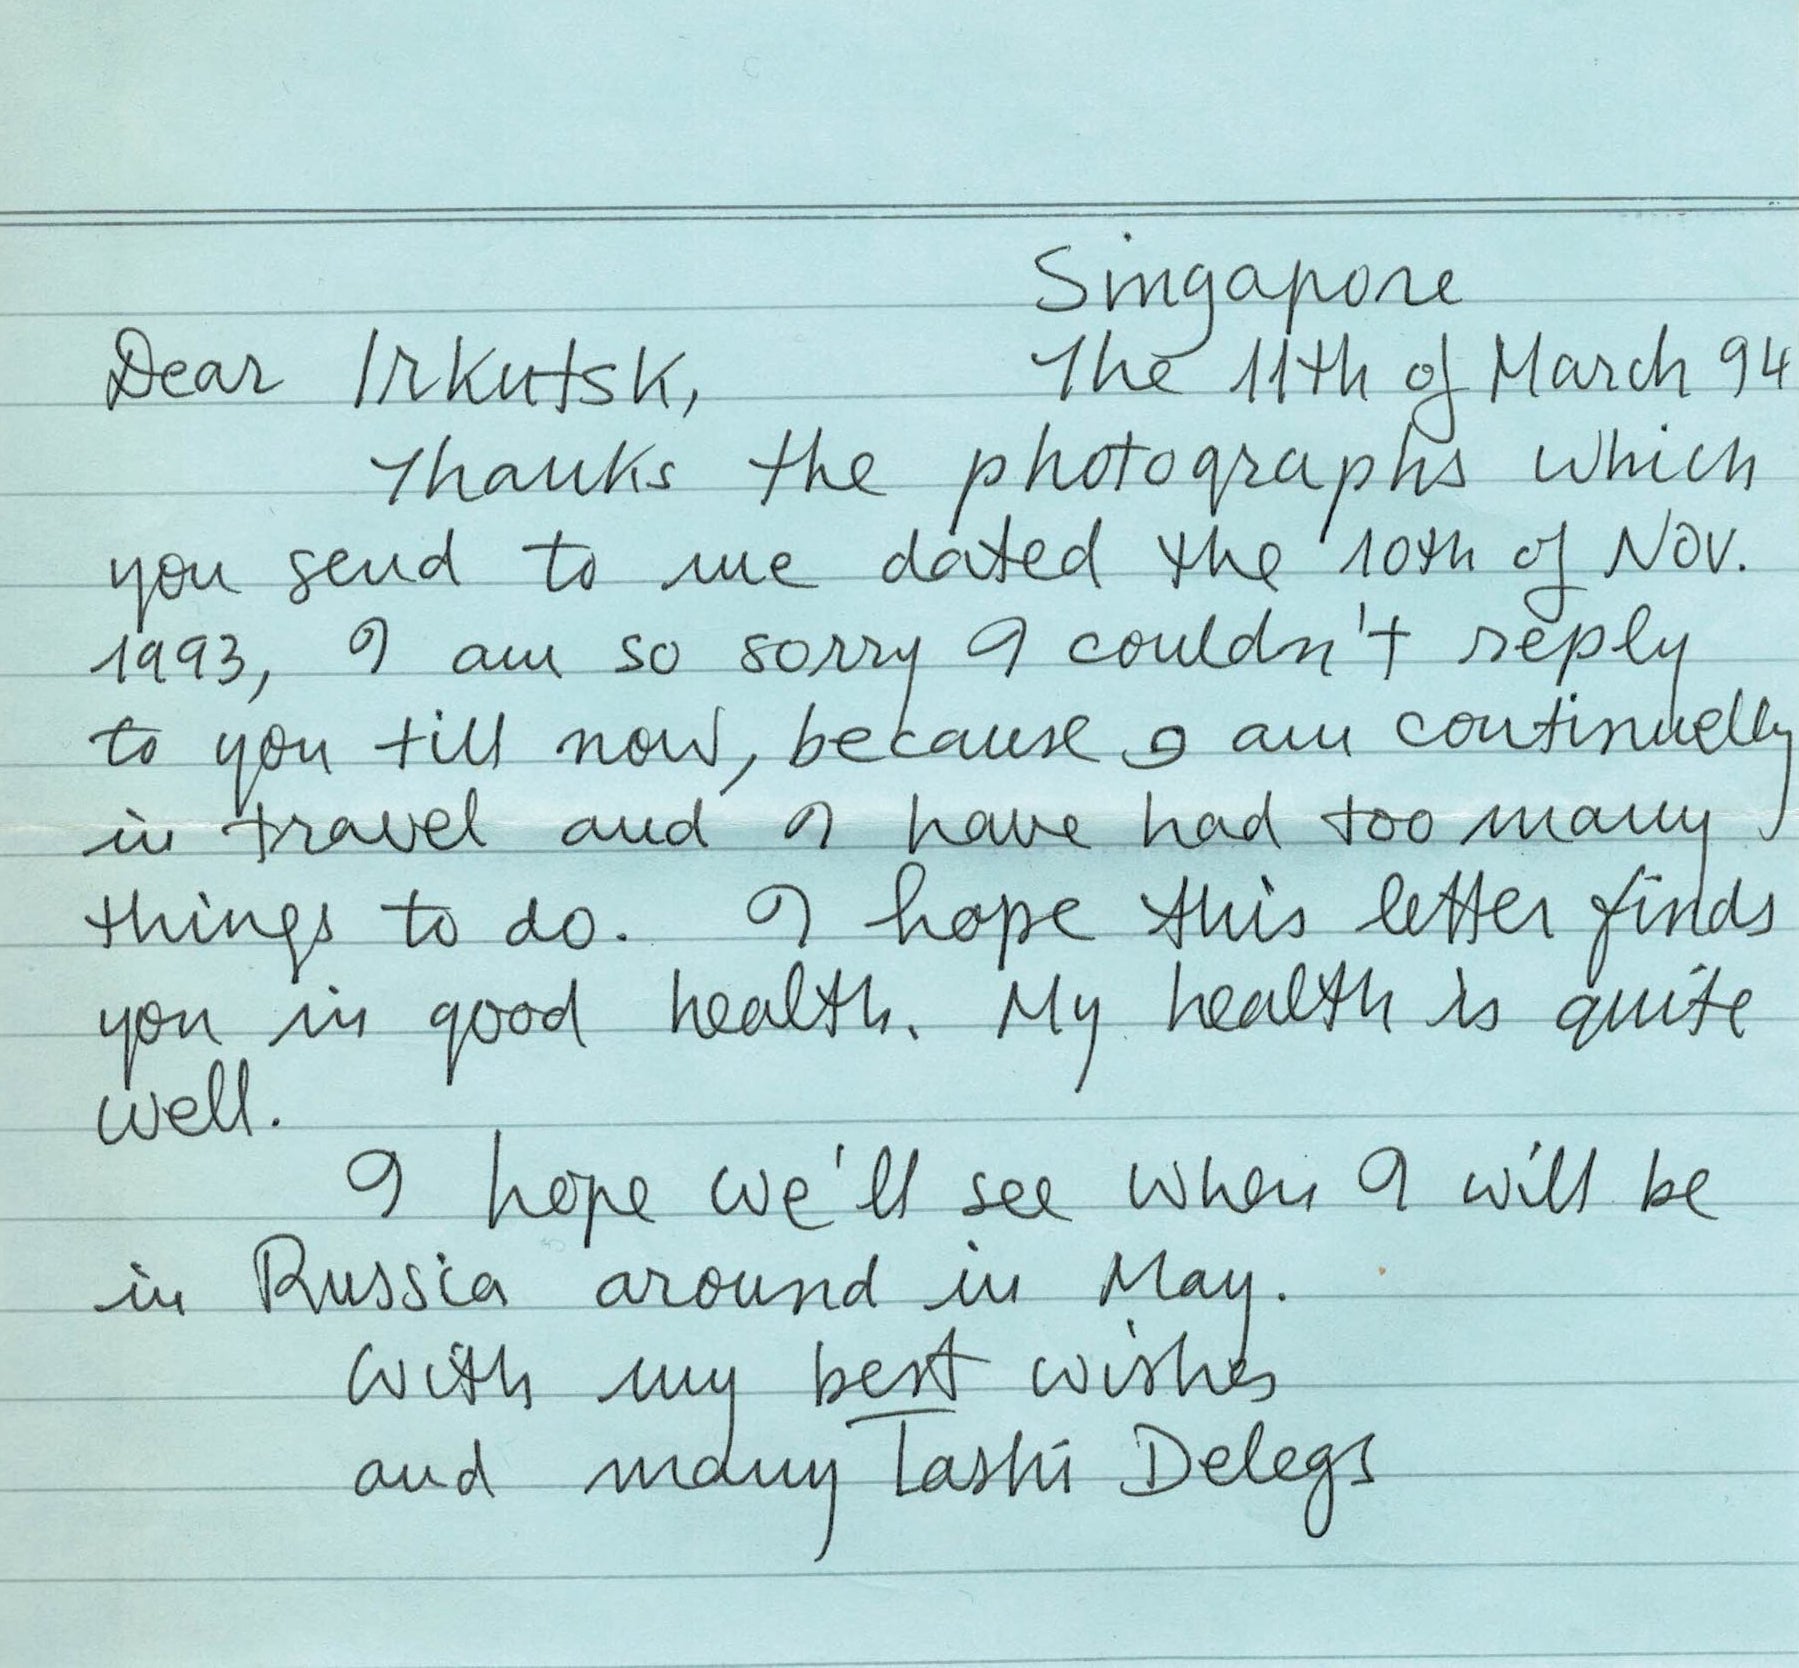 Singapore
Dear Irkutsk, The 11th of March 94
Thanks the photographs which
you send to me dated the 10th of Nov.
1993, I am so sorry I couldn't reply
to you till now, because I am continuelly
in travel and I have had too many
things to do. I hope this letter finds
you in good health. My health is quite
well.
I hope we'll see when I will be
in Russia around in May.
With my best wishes
and many Tashi Delegs